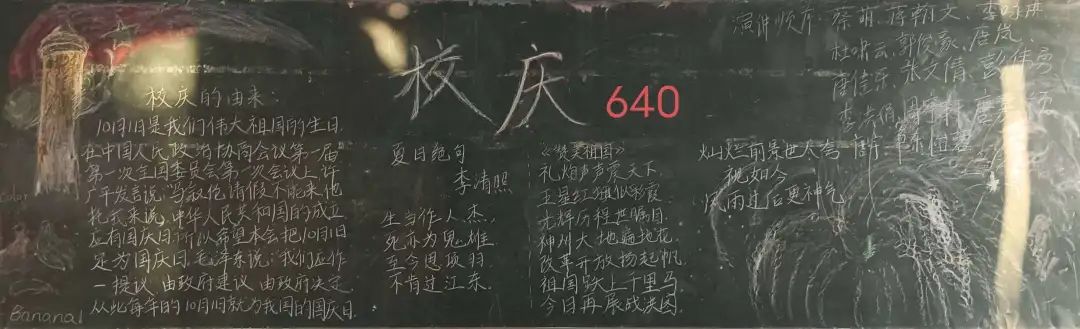 校庆
640
校庆的由来:
10月1日是我们伟大祖国的生日.
在中国人民政治协商会议第一届
第一次全国委员会第一次会议上,许
广平发言说:"马叙伦请假不能来,他
托我来说,中华人民共和国的成立
应有国庆日,所以希望本会把10月1日
定为国庆日.毛泽东说:"我们应作
一提议,由政府建议,由政府决定.
从此每年的10月1日就为我国的国庆日.
Banana!
夏日绝句
李清照
生当作人杰,
死亦为鬼雄
至今思项羽.
不肯过江东.
《赞美祖国》
礼炮声声震天下,
五星红旗似彩霞.
光辉历程世瞩目.
神州大地遍地花.
改革开放扬起帆.
祖国跃上千里马.
今日再展战决图.
灿烂前景
犹如今
风雨过后更神气
演讲顺序:蔡萌、蒋翰文、李
杜 云、郭俊豪、唐岚、
唐佳乐、张文倩、彭伟
李